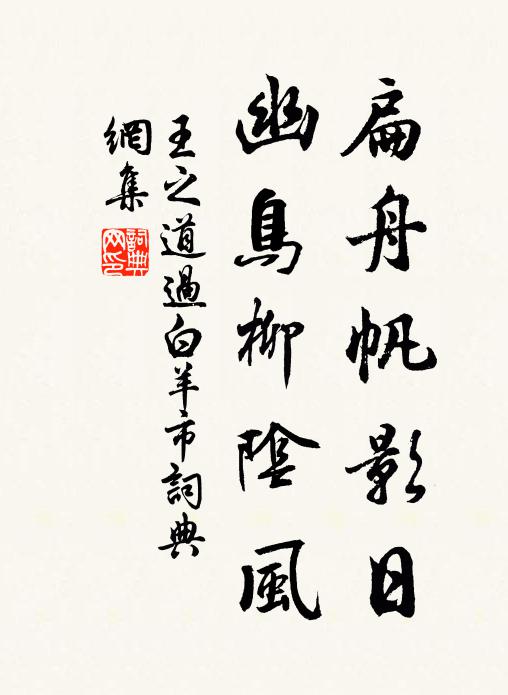 扁舟帆影日
幽鳥柳陰風
王之道過白羊市詞典
網集
詞典
网印